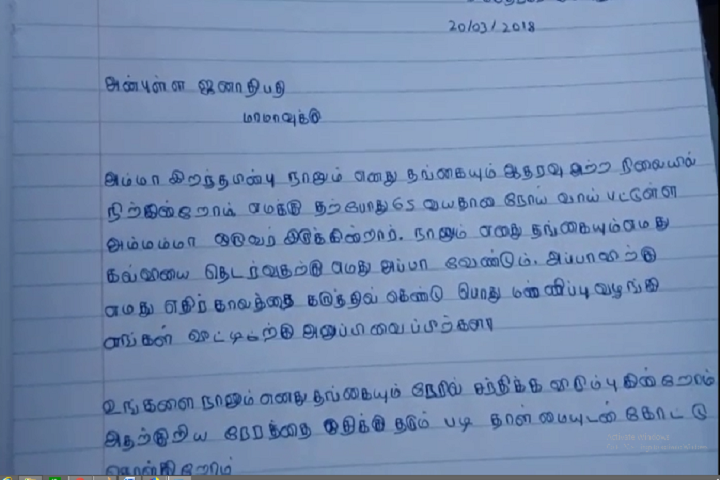 20/03/2018
அன்புள்ள ஜனாதிபதி
மாமாவுக்கு
அம்மா இறந்தபின்பு நானும் எனது தங்கையும் ஆதரவு அற்ற நிலையில்
நிற்கின்றோம் எமக்கு தற்போது 65 வயதான நோய் வாய் பட்டுள்ள
அம்மம்மா ஒருவர் இருக்கின்றார். நானும் எனது தங்கையும் எமது
கல்வியை தெடர்வதற்கு எமது அப்பா வேண்டும். அப்பாவிற்கு
எமது எதிர்காலத்தை கருத்தில் கொண்டு பொது மன்னிப்பு வழங்கி
எங்கள் வீட்டிற்கு அனுப்பிவைப்பீர்களா
உங்களை நானும் எனது தங்கையும் நேரில் சந்திக்க விரும்புகின்றோம்
அதற்குரிய நேரத்தை ஒதுக்கி தரும் படி தாள்மையுடன் கேட்டு
கொள்கிறோம்